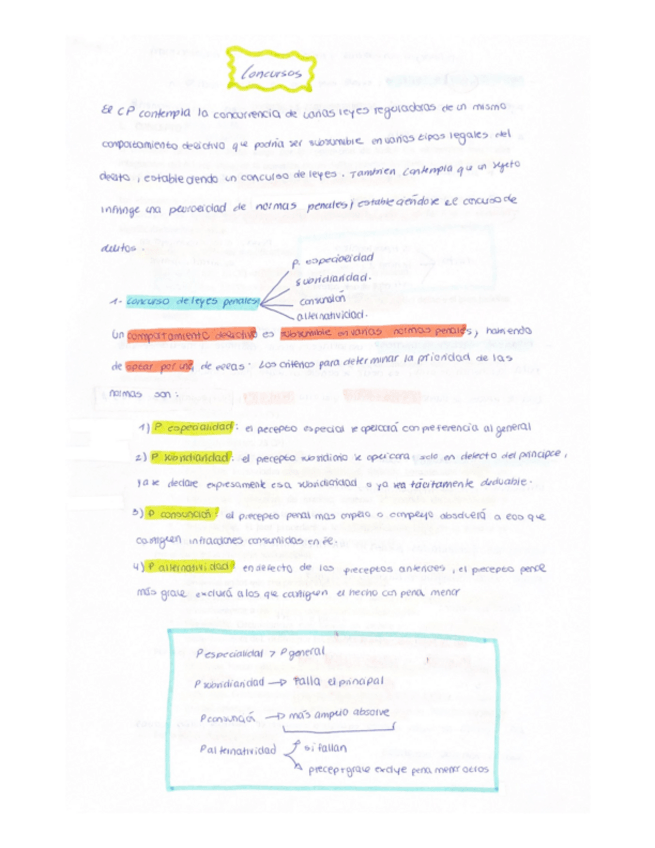 Concursos
El CP contempla la concurrencia de varias leyes reguladoras de un mismo
comportamiento delictivo que podría ser subsumible en varios tipos legales del
delito, estableciendo un concurso de leyes. También contempla que un sujeto
infringe una pluralidad de normas penales, estableciéndose el concurso de
delitos.
P. especialidad
subsidiaridad.
consunción
alternatividad.
1- concurso de leyes penales
Un comportamiento delictivo es subsumible en varias normas penales, habiendo
de optar por una de ellas. Los criterios para determinar la prioridad de las
normas son:
1) P especialidad: el precepto especial se aplicará con preferencia al general
2) P subsidiaridad: el precepto subsidiario se aplicará solo en defecto del principal,
ya se declare expresamente esa subsidiaridad o ya sea tácitamente deducible.
3) P consunción: el precepto penal más amplio o complejo absolverá a los que
castiguen infracciones consumidas en él.
4) P alternatividad: en defecto de los preceptos anteriores, el precepto penal
más grave excluirá a los que castiguen el hecho con pena menor
P especialidad > P general
P subsidiaridad → falla el principal
P consunción → más amplio absorve
P alternatividad si fallan
precept grave excluye pena menor otros